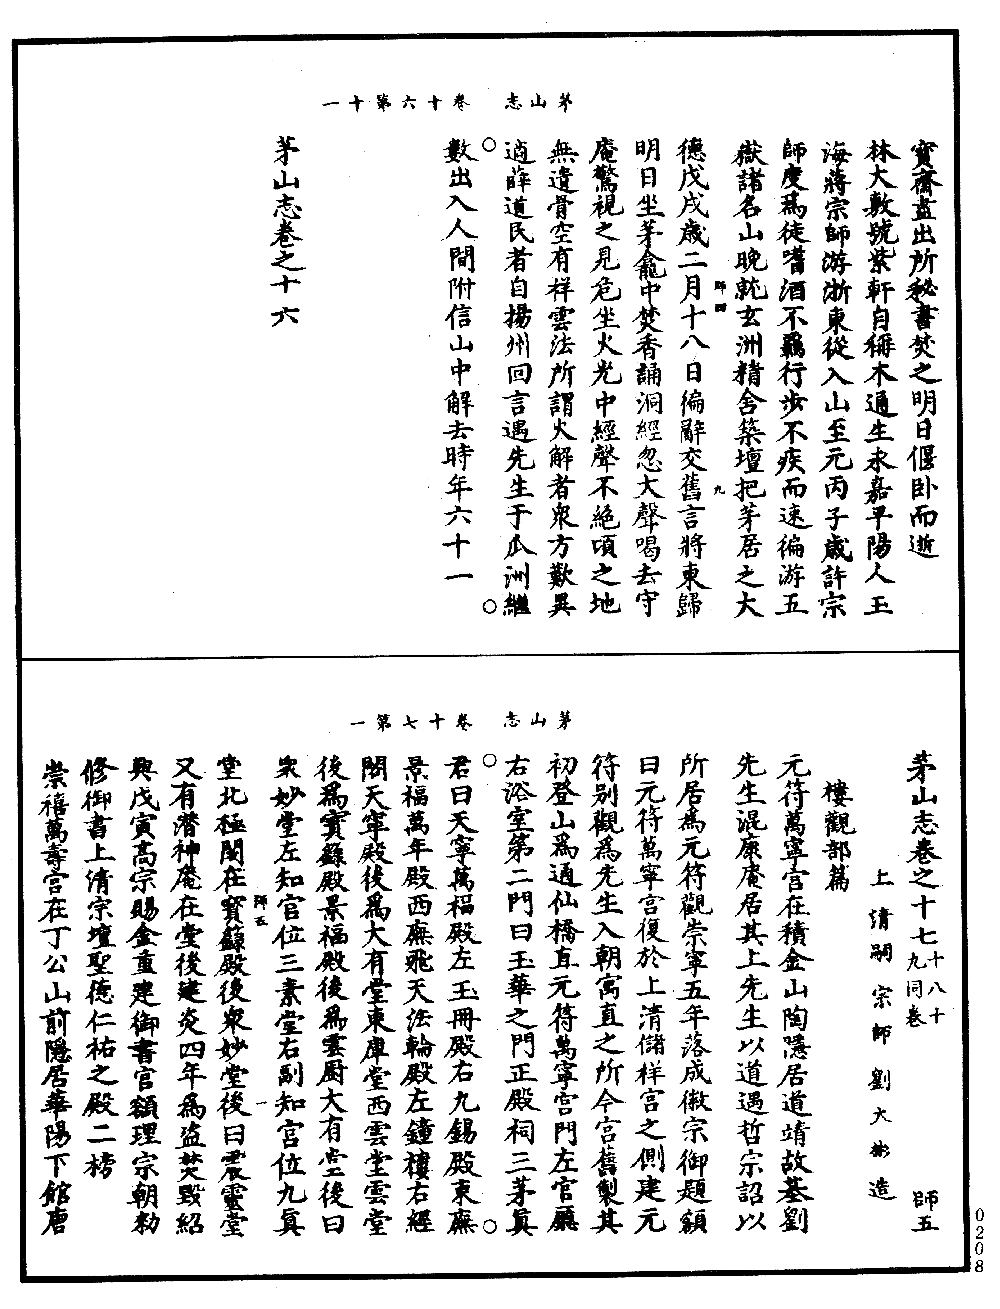 茅山志　卷十六第十一
寶齋盡出所秘書焚之明日偃卧而逝
林大敷號紫軒自稱木通生永嘉平陽人玉
海蔣宗師游浙東從入山至元丙子歲許宗
師度爲徒嗜酒不羈行步不疾而速徧游五
嶽諸名山晚就玄洲精舍築壇把茅居之大
師四　九
德戊戌歲二月十八日徧辭交舊言將東歸
明日坐茅龕中焚香誦洞經忽大聲喝去守
庵驚視之見危坐火光中經聲不絕頃之地
無遺骨空有祥雲法所謂火解者衆方歎異
適薛道民者自揚州回言遇先生于瓜洲繼
數出入人間附信山中解去時年六十一
茅山志卷之十六
茅山志　卷十七第一
茅山志卷之十七十八十九同卷　師五
上清嗣宗師劉大彬造
樓觀部篇
元符萬寧宮在積金山陶隱居道靖故基劉
先生混康庵居其上先生以道遇哲宗詔以
所居爲元符觀崇寧五年落成徽宗御題額
曰元符萬寧宮復於上清儲祥宮之側建元
符別觀爲先生入朝寓直之所今宮舊製其
初登山爲通仙橋直元符萬寧宮門左官廳
右浴室第二門曰玉華之門正殿祠三茅眞
君曰天寧萬福殿左玉冊殿右九錫殿東廡
景福萬年殿西廡飛天法輪殿左鐘樓右經
閣天寧殿後爲大有堂東庫堂西雲堂雲堂
後爲寶籙殿景福殿後爲雲厨大有堂後曰
衆妙堂左知宮位三素堂右副知宮位九眞
師五　一
堂北極閣在寶籙殿後衆妙堂後曰震靈堂
又有潛神庵在堂後建炎四年爲盜焚毀紹
興戊寅高宗賜金重建御書官額理宗朝勑
修御書上清宗壇聖德仁祐之殿二榜
崇禧萬壽宮在丁公山前隱居華陽下館唐
0208